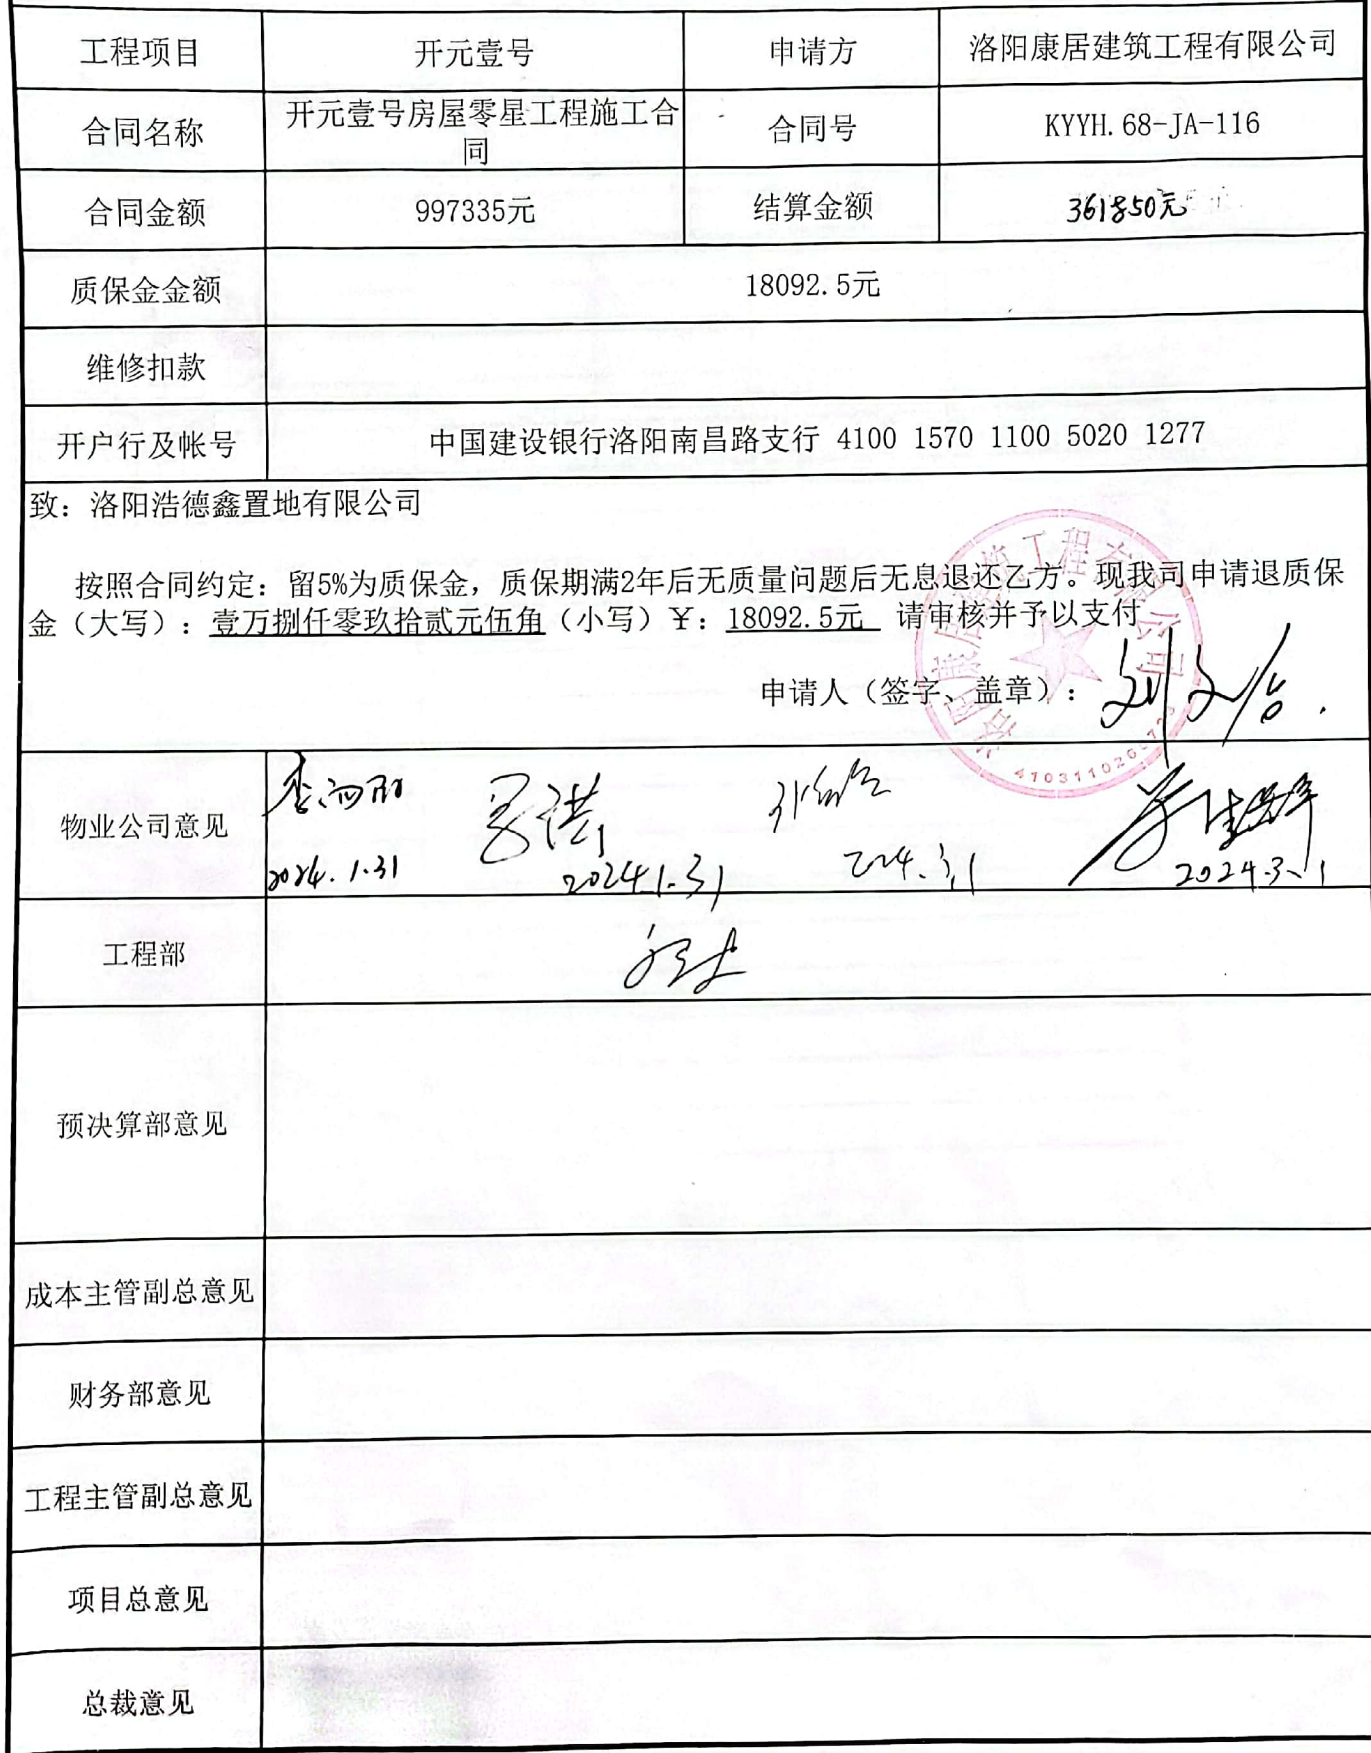 工程项目 开元壹号 申请方 洛阳康居建筑工程有限公司
合同名称 开元壹号房屋零星工程施工合
同 合同号 KYYH.68-JA-116
合同金额 997335元 结算金额 361850元
质保金金额 18092.5元
维修扣款
开户行及帐号 中国建设银行洛阳南昌路支行 4100 1570 1100 5020 1277
致：洛阳浩德鑫置地有限公司
按照合同约定：留5%为质保金，质保期满2年后无质量问题后无息退还乙方。现我司申请退质保
金（大写）：壹万捌仟零玖拾贰元伍角（小写）￥：18092.5元 请审核并予以支付
申请人（签字、盖章）：
洛阳康居建筑工程有限公司
物业公司意见
2024.1.31 2024.1.31 2024.3.1 2024.3.1
工程部
预决算部意见
成本主管副总意见
财务部意见
工程主管副总意见
项目总意见
总裁意见